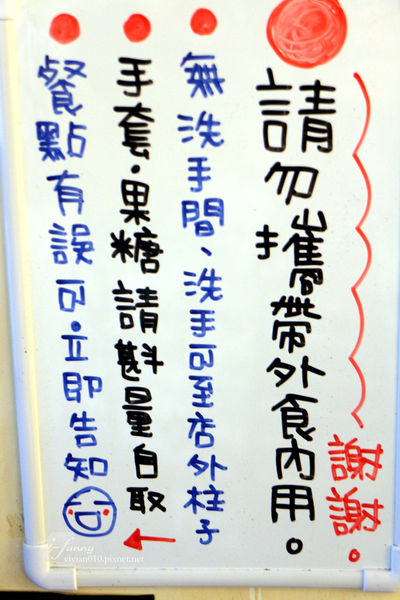 請勿攜帶外食內用。
謝謝。
無洗手間、洗手可至店外柱子
手套.果糖請斟量自取
餐點有誤可.立即告知
Sunny
vivian010.pixnet.net